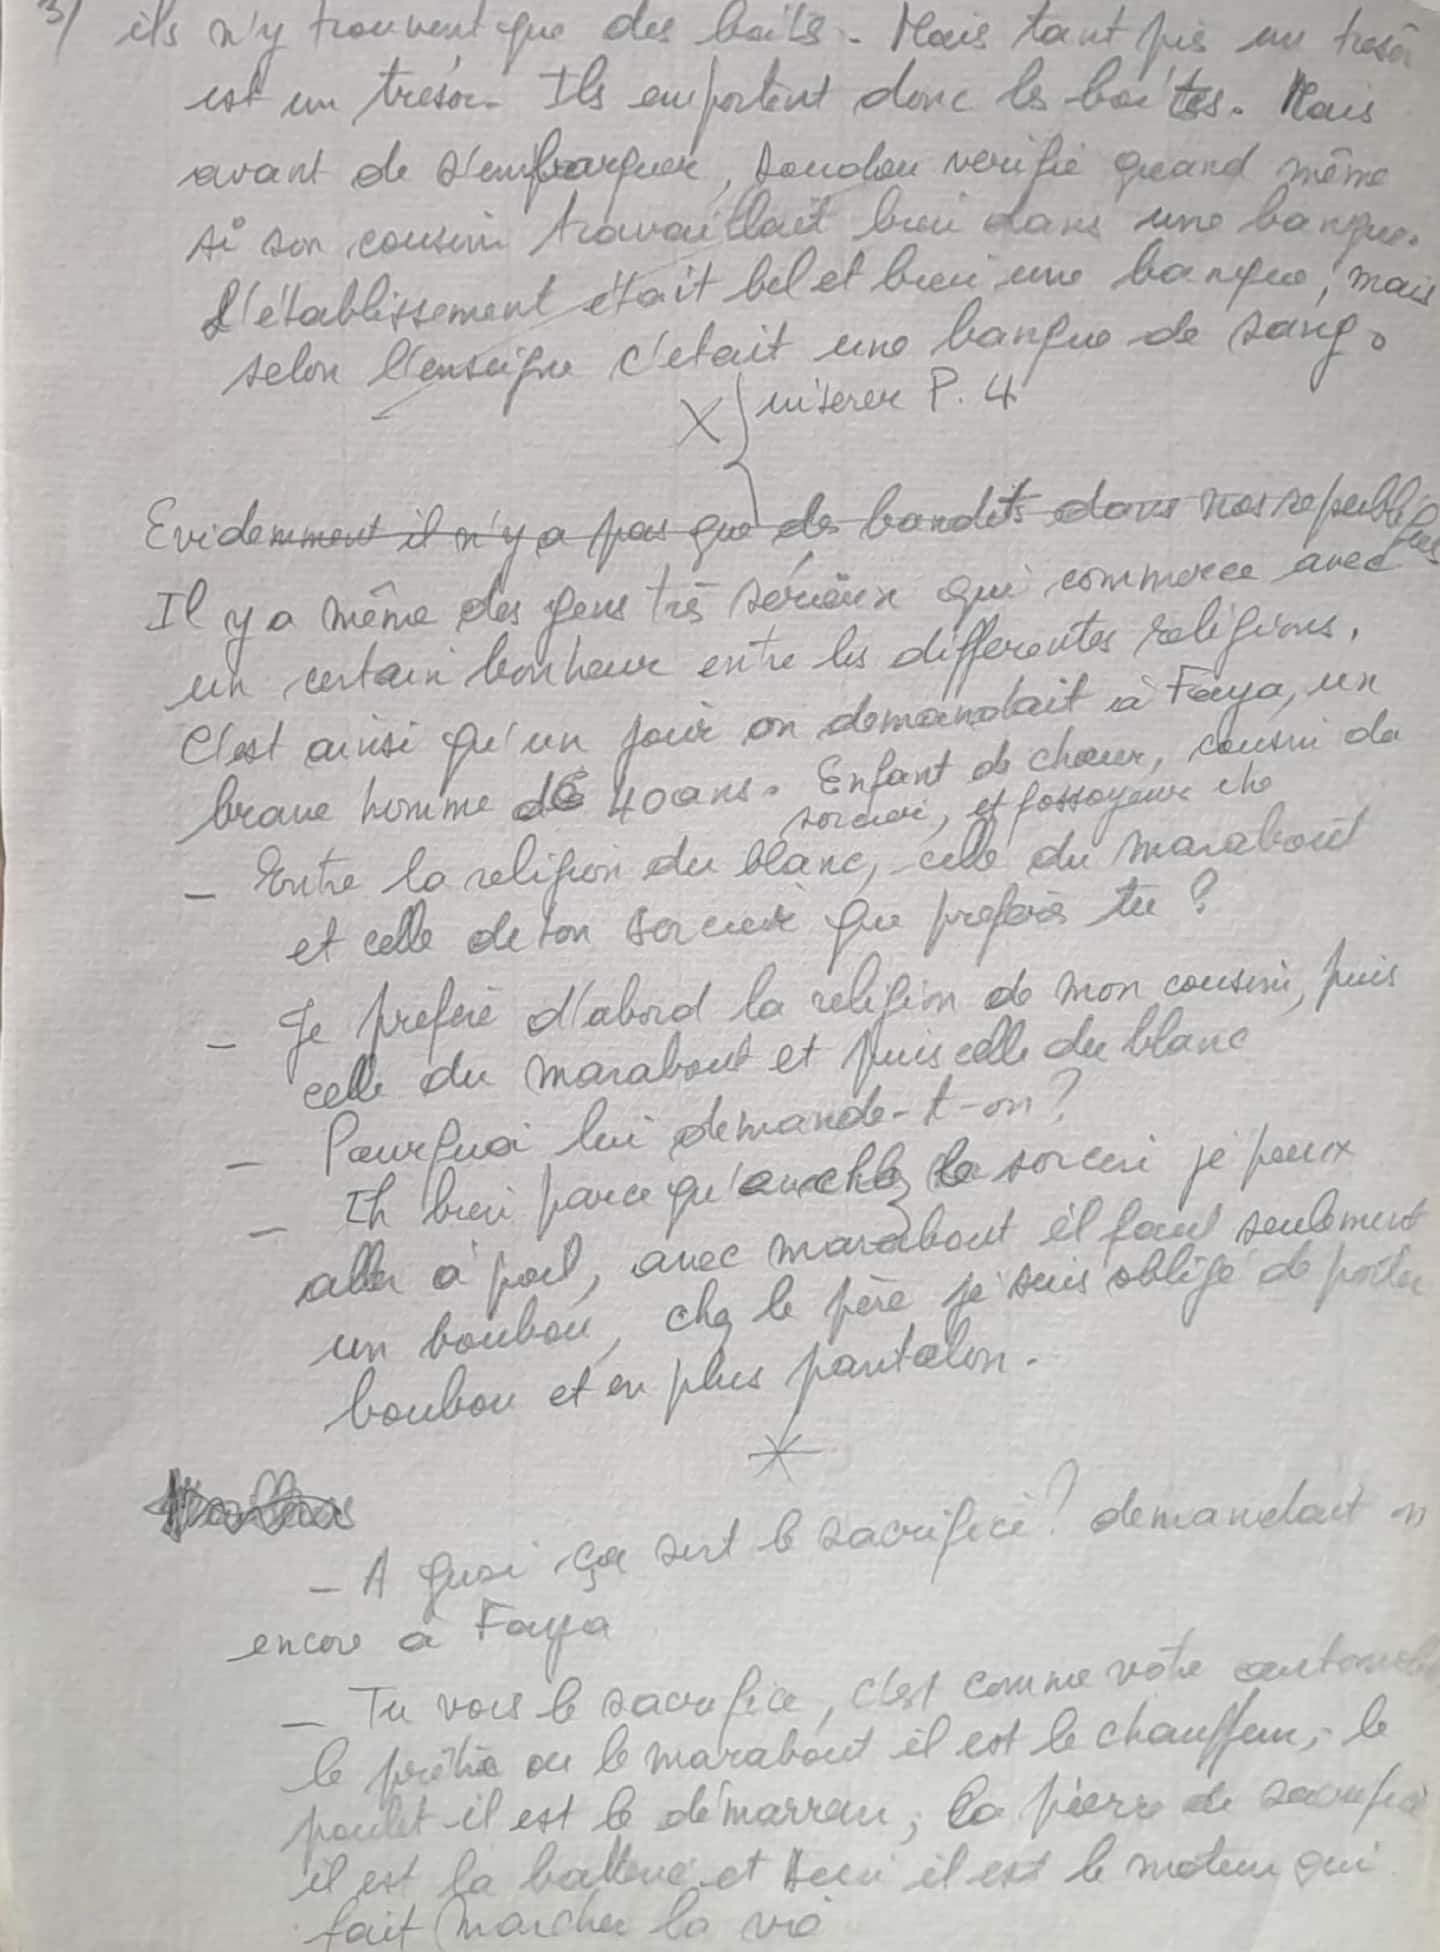 3/ ils n'y trouvent que des boîts. Mais tant pis un tresor
est un trésor. Ils emportent donc les boîtes. Mais
avant de s'embarquer, Soudou verifie quand même
si son cousin travaillait bien dans une banque.
L'établissement était bel et bien une banque, mais
selon l'enseigne c'etait une banque de sang.
X inserer P. 4
Evidemment il n'y a pas que des bandits dans nos republiques
Il y a même des gens très sérieux qui commerce avec
un certain bonheur entre les differentes religions.
C'est ainsi qu'un jour on demandait à Faya, un
brave homme de 40 ans. Enfant de chœur, cousin de
sorcier, et fossoyeur
- Entre la religion du blanc, celle du marabout
et celle de ton sorcier que prefères tu ?
- Je preferè d'abord la religion de mon cousin, puis
celle du marabout et puis celle du blanc
- Pourquoi lui demande-t-on ?
- Eh bien parce qu'avec chez le sorcier je peux
aller à poil, avec marabout il faut seulement
un boubou, chez le père je suis obligé de porter
boubou et en plus pantalon.
- A quoi ça sert le sacrifice ? demandait on
encore à Faya
- Tu vois le sacrifice, c'est comme votre automobile
le prêtre ou le marabout il est le chauffeur, le
poulet il est le démarreur, la pierre de sacrifice
il est la batterie et il est le moteur qui
fait marcher la vie